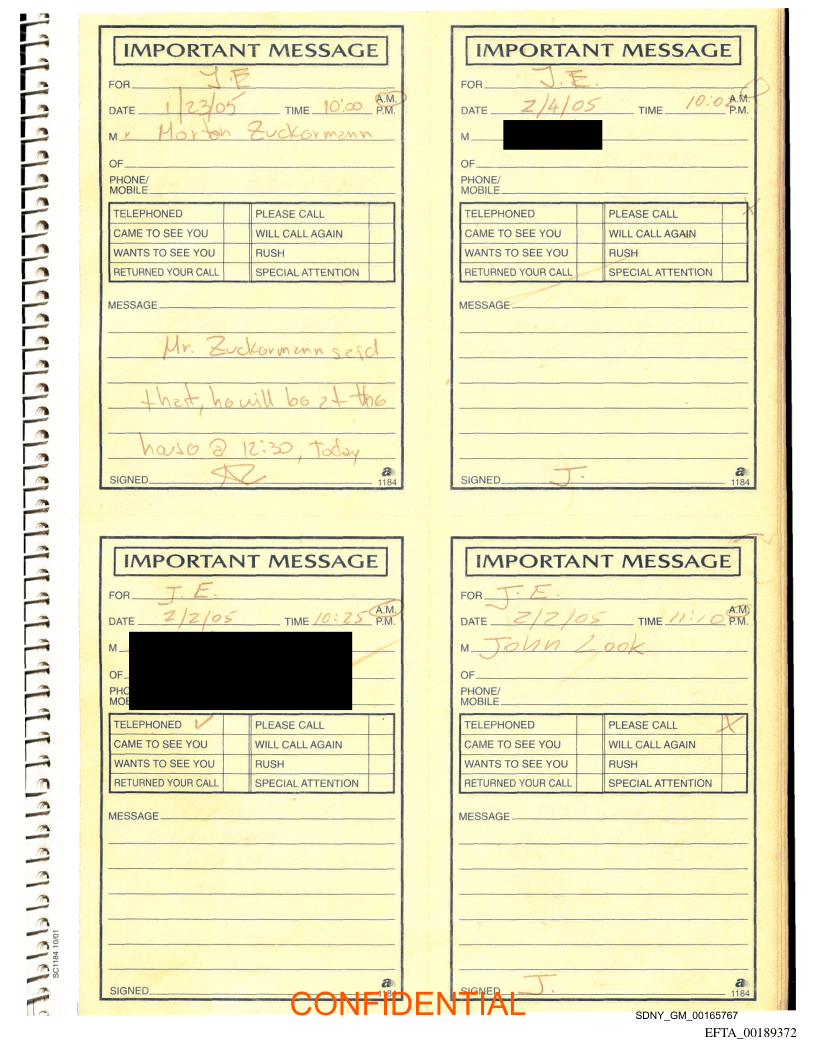 IMPORTANT MESSAGE
FOR J.E
DATE 1/23/05 TIME 10:00 A.M. P.M.
Mr Morton Zuckormann
OF
PHONE/
MOBILE
TELEPHONED PLEASE CALL
CAME TO SEE YOU WILL CALL AGAIN
WANTS TO SEE YOU RUSH
RETURNED YOUR CALL SPECIAL ATTENTION
MESSAGE
Mr. Zuckormann said
that, he will be at the
house @ 12:30, today
SIGNED
a
1184
IMPORTANT MESSAGE
FOR J.E.
DATE 2/4/05 TIME A.M. P.M.
M
OF
PHONE/
MOBILE
TELEPHONED PLEASE CALL X
CAME TO SEE YOU WILL CALL AGAIN
WANTS TO SEE YOU RUSH
RETURNED YOUR CALL SPECIAL ATTENTION
MESSAGE
SIGNED J.
a
1184
IMPORTANT MESSAGE
FOR J.E.
DATE 2/2/05 TIME 10:25 A.M. P.M.
M
OF
PHO
MOB
TELEPHONED ✓ PLEASE CALL
CAME TO SEE YOU WILL CALL AGAIN
WANTS TO SEE YOU RUSH
RETURNED YOUR CALL SPECIAL ATTENTION
MESSAGE
SIGNED
a
1184
IMPORTANT MESSAGE
FOR J.E.
DATE 2/2/05 TIME 11:10 A.M. P.M.
M John Look
OF
PHONE/
MOBILE
TELEPHONED PLEASE CALL X
CAME TO SEE YOU WILL CALL AGAIN
WANTS TO SEE YOU RUSH
RETURNED YOUR CALL SPECIAL ATTENTION
MESSAGE
SIGNED J.
a
1184
SC1184 10/01
CONFIDENTIAL
SDNY_GM_00165767
EFTA_00189372